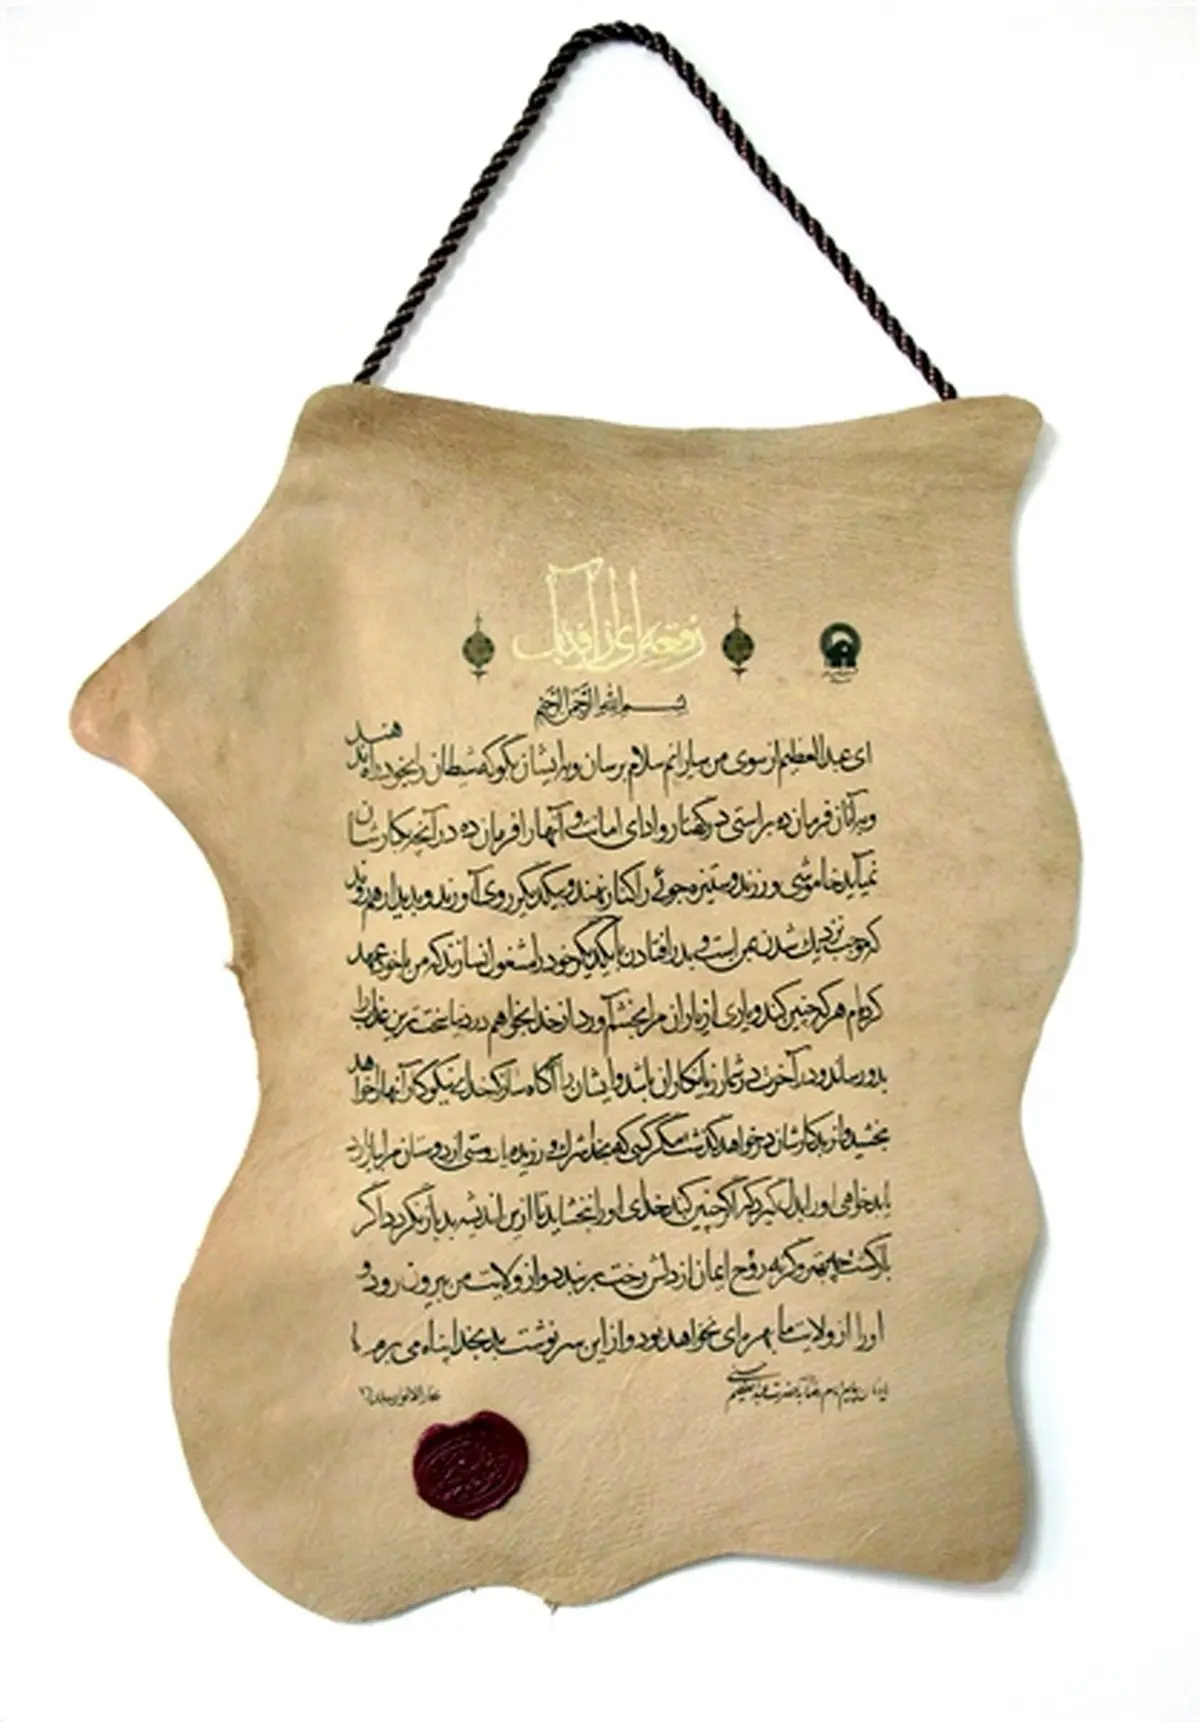 رقعه‌ای از آفتاب
بسم الله الرحمن الرحیم
ای عبدالعظیم از سوی من بیارانم سلام برسان و به ایشان بگو که شیطان را بخود راه ندهند
و به آنان فرمان ده براستی در گفتار و ادای امانت و آنها را فرمان ده در آنچه بکارشان
نمیآید خاموشی ورزند و ستیزه جوئی را کنار نهند و بیکدیگر روی آورند و بدیدار هم روند
که موجب نزدیک شدن بمن است و بدر افتادن با یکدیگر خود را مشغول نسازند که من با خود عهد
کرده‌ام هر که چنین کند و یاری از یاران مرا بخشم آورد از خدا بخواهم در دنیا سخت ترین عذاب را
بدو رساند و در آخرت در شمار زیانکاران باشد و ایشان را آگاه ساز که خدای نیکوکار آنها را خواهد
بخشید و از بدکارشان در خواهد گذشت مگر کسی که بخدا شرک ورزیده یا دوستی از دوستان مرا بیازارد
یا بدخواهی او را بدل گیرد که اگر چنین کند خدای او را نبخشاید تا از این اندیشه بد باز نگردد اگر
بازگشت چه بهتر و گرنه روح ایمان از دلش رخت بر بندد و از ولایت من بیرون رود و
او را از ولایت ما بهره‌ای نخواهد بود و از این سرنوشت بد بخدا پناه می برم
پیام امام رضا به حضرت عبدالعظیم حسنی
بحار الانوار جلد